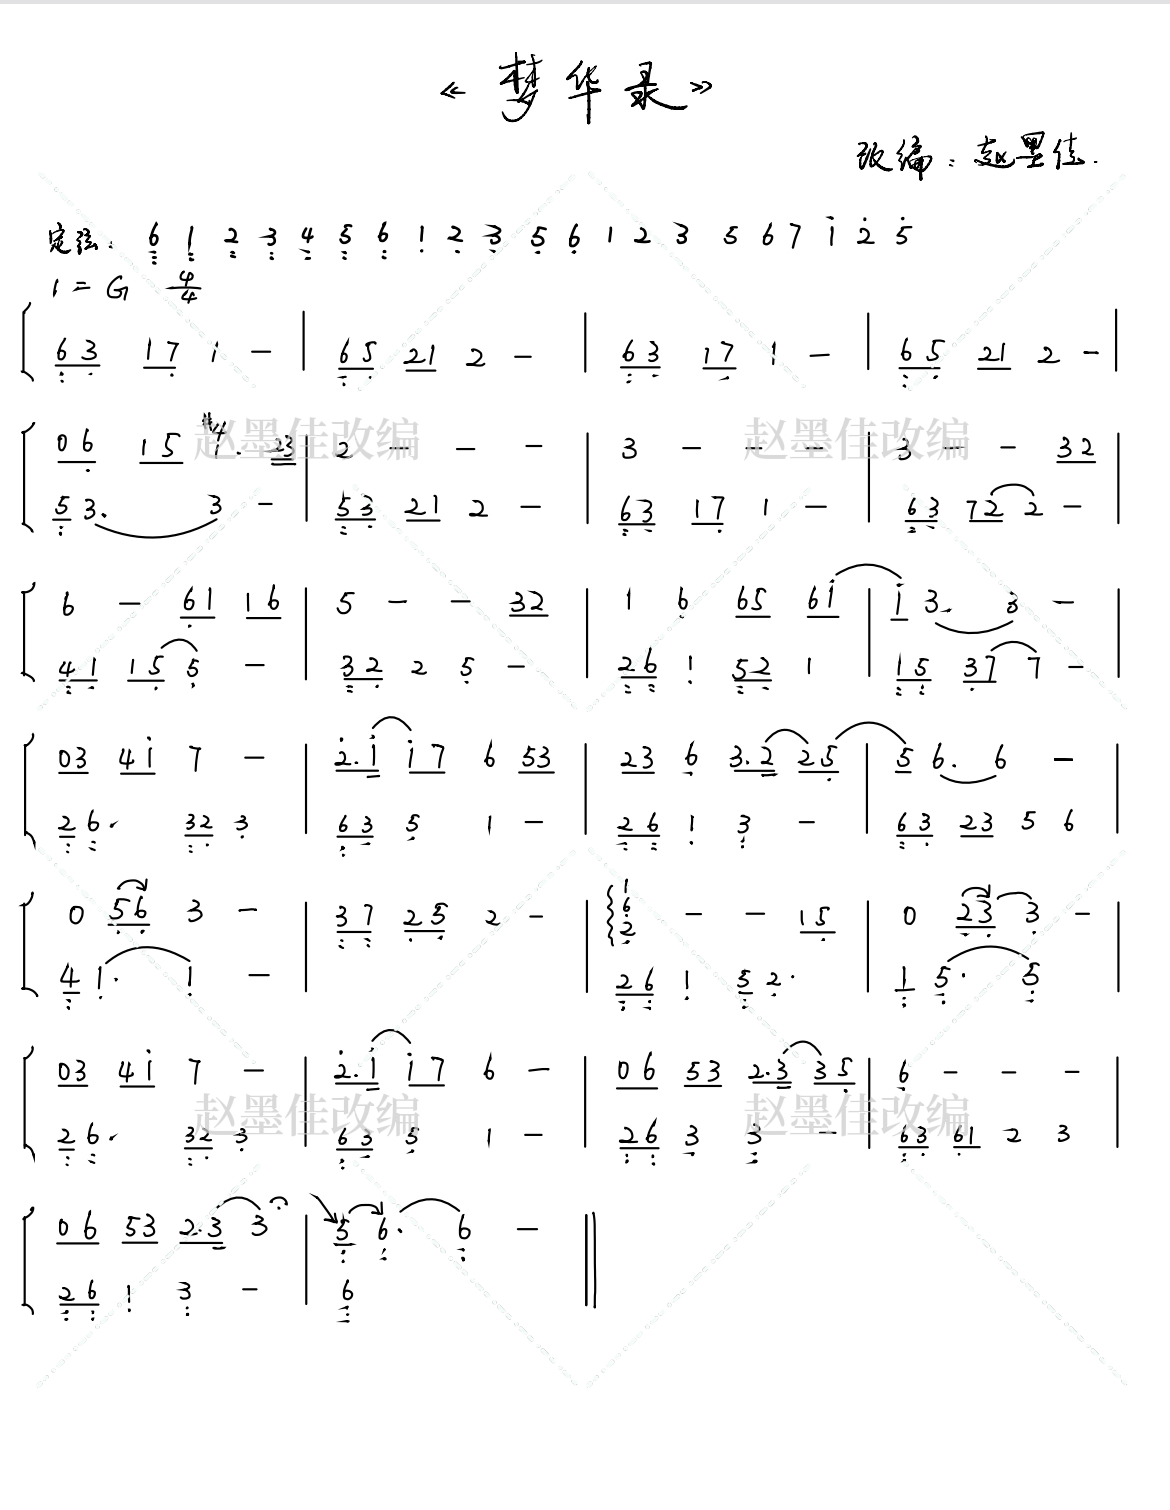 《梦华录》
改编：赵墨佳.
定弦: 6 1 2 3 4 5 6 1 2 3 5 6 1 2 3 5 6 7 i 2 5
1=G 4/4
63 17 1 - | 65 21 2 - | 63 17 1 - | 65 21 2 - |
06 15 #4 1. 23 | 2 - - - | 3 - - - | 3 - - 32 |
赵墨佳改编 赵墨佳改编
53. 3 - | 53 21 2 - | 63 17 1 - | 63 72 2 - |
6 - 61 16 | 5 - - 32 | 1 6 65 6i | i 3. 3 - |
41 15 5 - | 32 2 5 - | 26 1 52 1 | 15 37 7 - |
03 4i 7 - | 2.i i7 6 53 | 23 6 3.2 25 | 5 6. 6 - |
26. 32 3 | 63 5 1 - | 26 1 3 - | 63 23 5 6 |
0 56 3 - | 37 25 2 - | 1 6 2 - - 15 | 0 23 3 - |
4 1. 1 - | | 26 1 5 2. | 1 5. 5 |
03 4i 7 - | 2.i i7 6 - | 06 53 2.3 35 | 6 - - - |
赵墨佳改编 赵墨佳改编
26. 32 3 | 63 5 1 - | 26 3 3 - | 63 61 2 3 |
06 53 2.3 3 | 5 6. 6 - ||
26 1 3 - | 6 ||